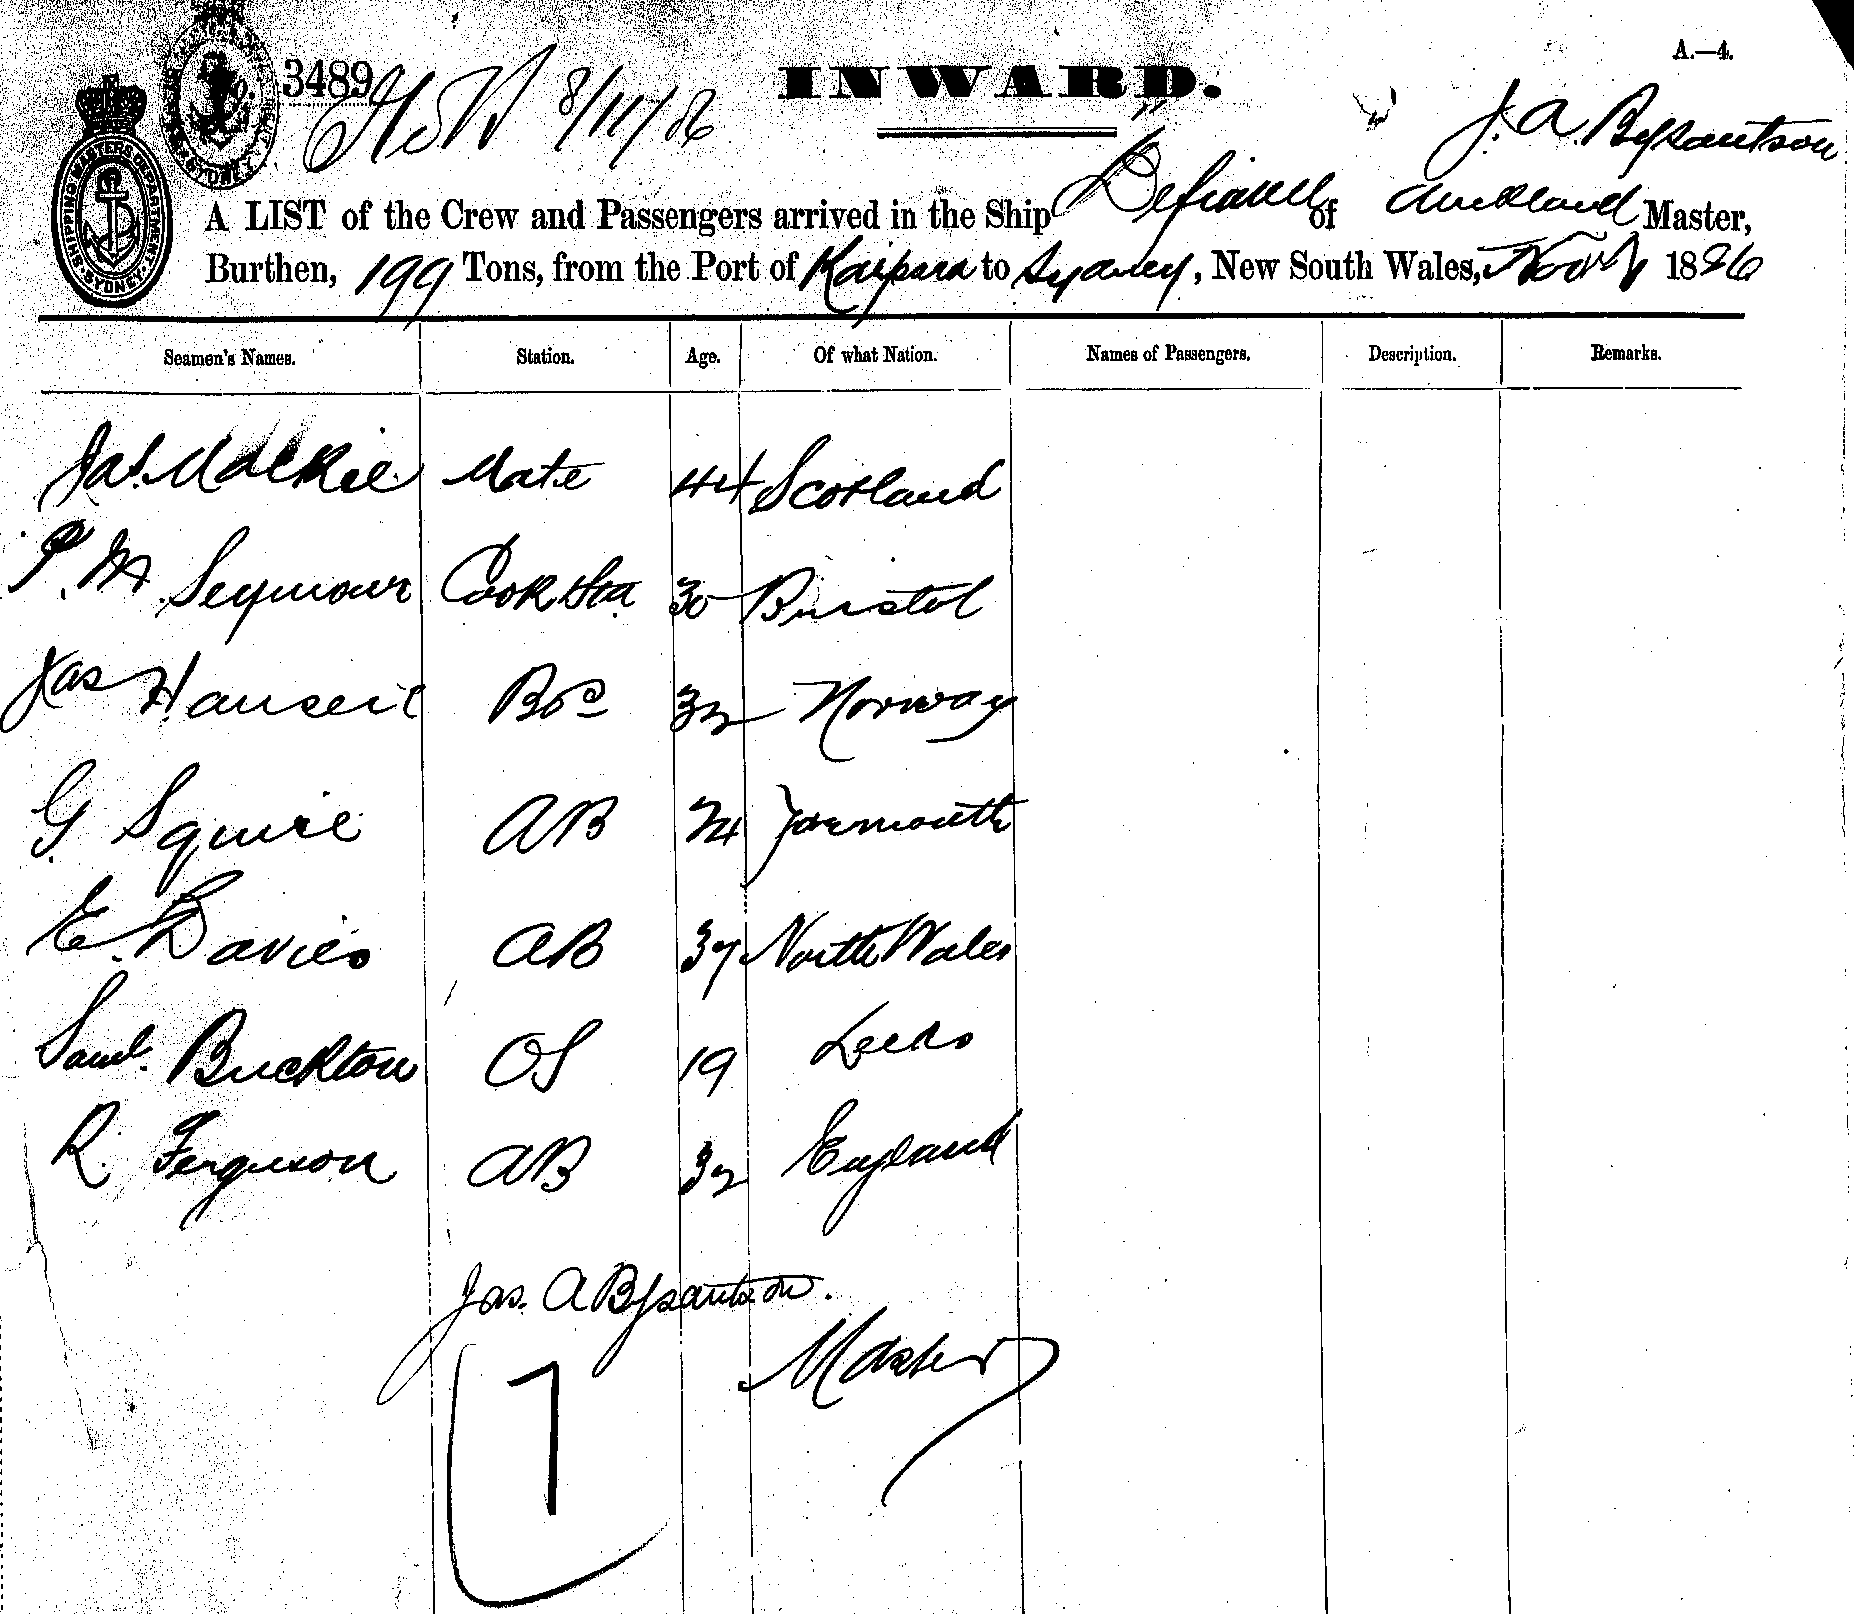 A.—4.
3489
INWARD.
8/11/86
J. A. Bysantson
A LIST of the Crew and Passengers arrived in the Ship "Defiance" of Auckland Master,
Burthen, 199 Tons, from the Port of Kaipara to Sydney, New South Wales, Novr 1886
SHIPPING MASTERS DEPARTMENT SYDNEY
Seamen's Names. Station. Age. Of what Nation. Names of Passengers. Description. Remarks.
Jas. Mackie Mate 44 Scotland
P. M. Seymour Cook Std 30 Bristol
Jas Hansen 32 Norway
G. Squire AB 24 Yarmouth
E. Davies AB 37 North Wales
Saml. Buckton OS 19 Leeds
R. Ferguson AB 32 England
Jas. A Bysantson.
Master
7